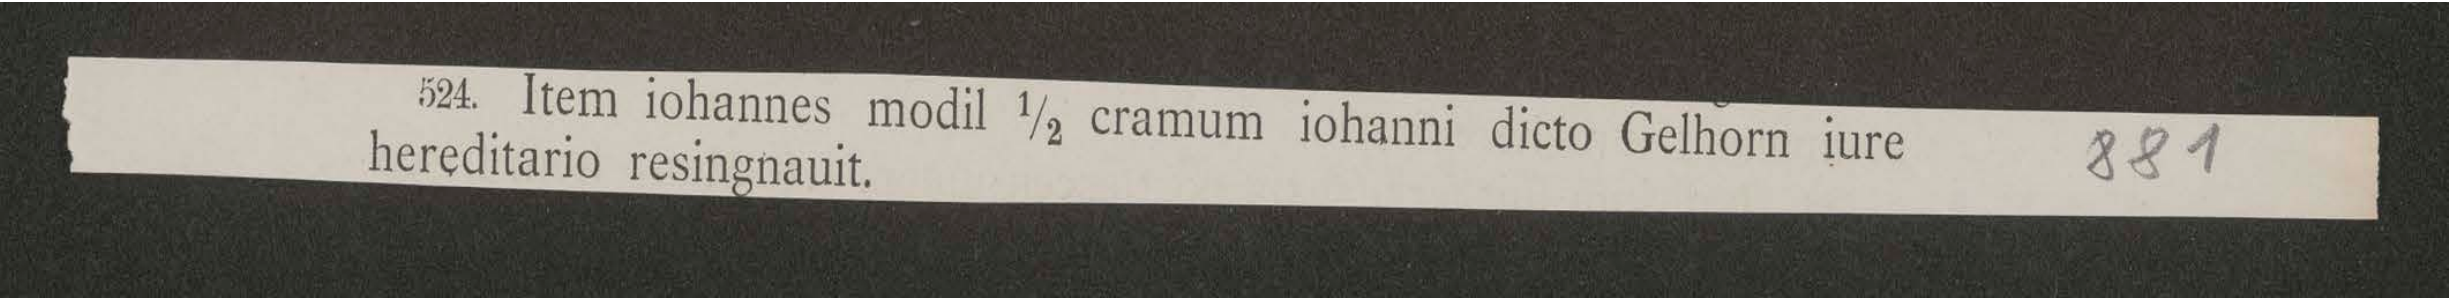 524. Item iohannes modil 1/2 cramum iohanni dicto Gelhorn iure 881
hereditario resingnauit.